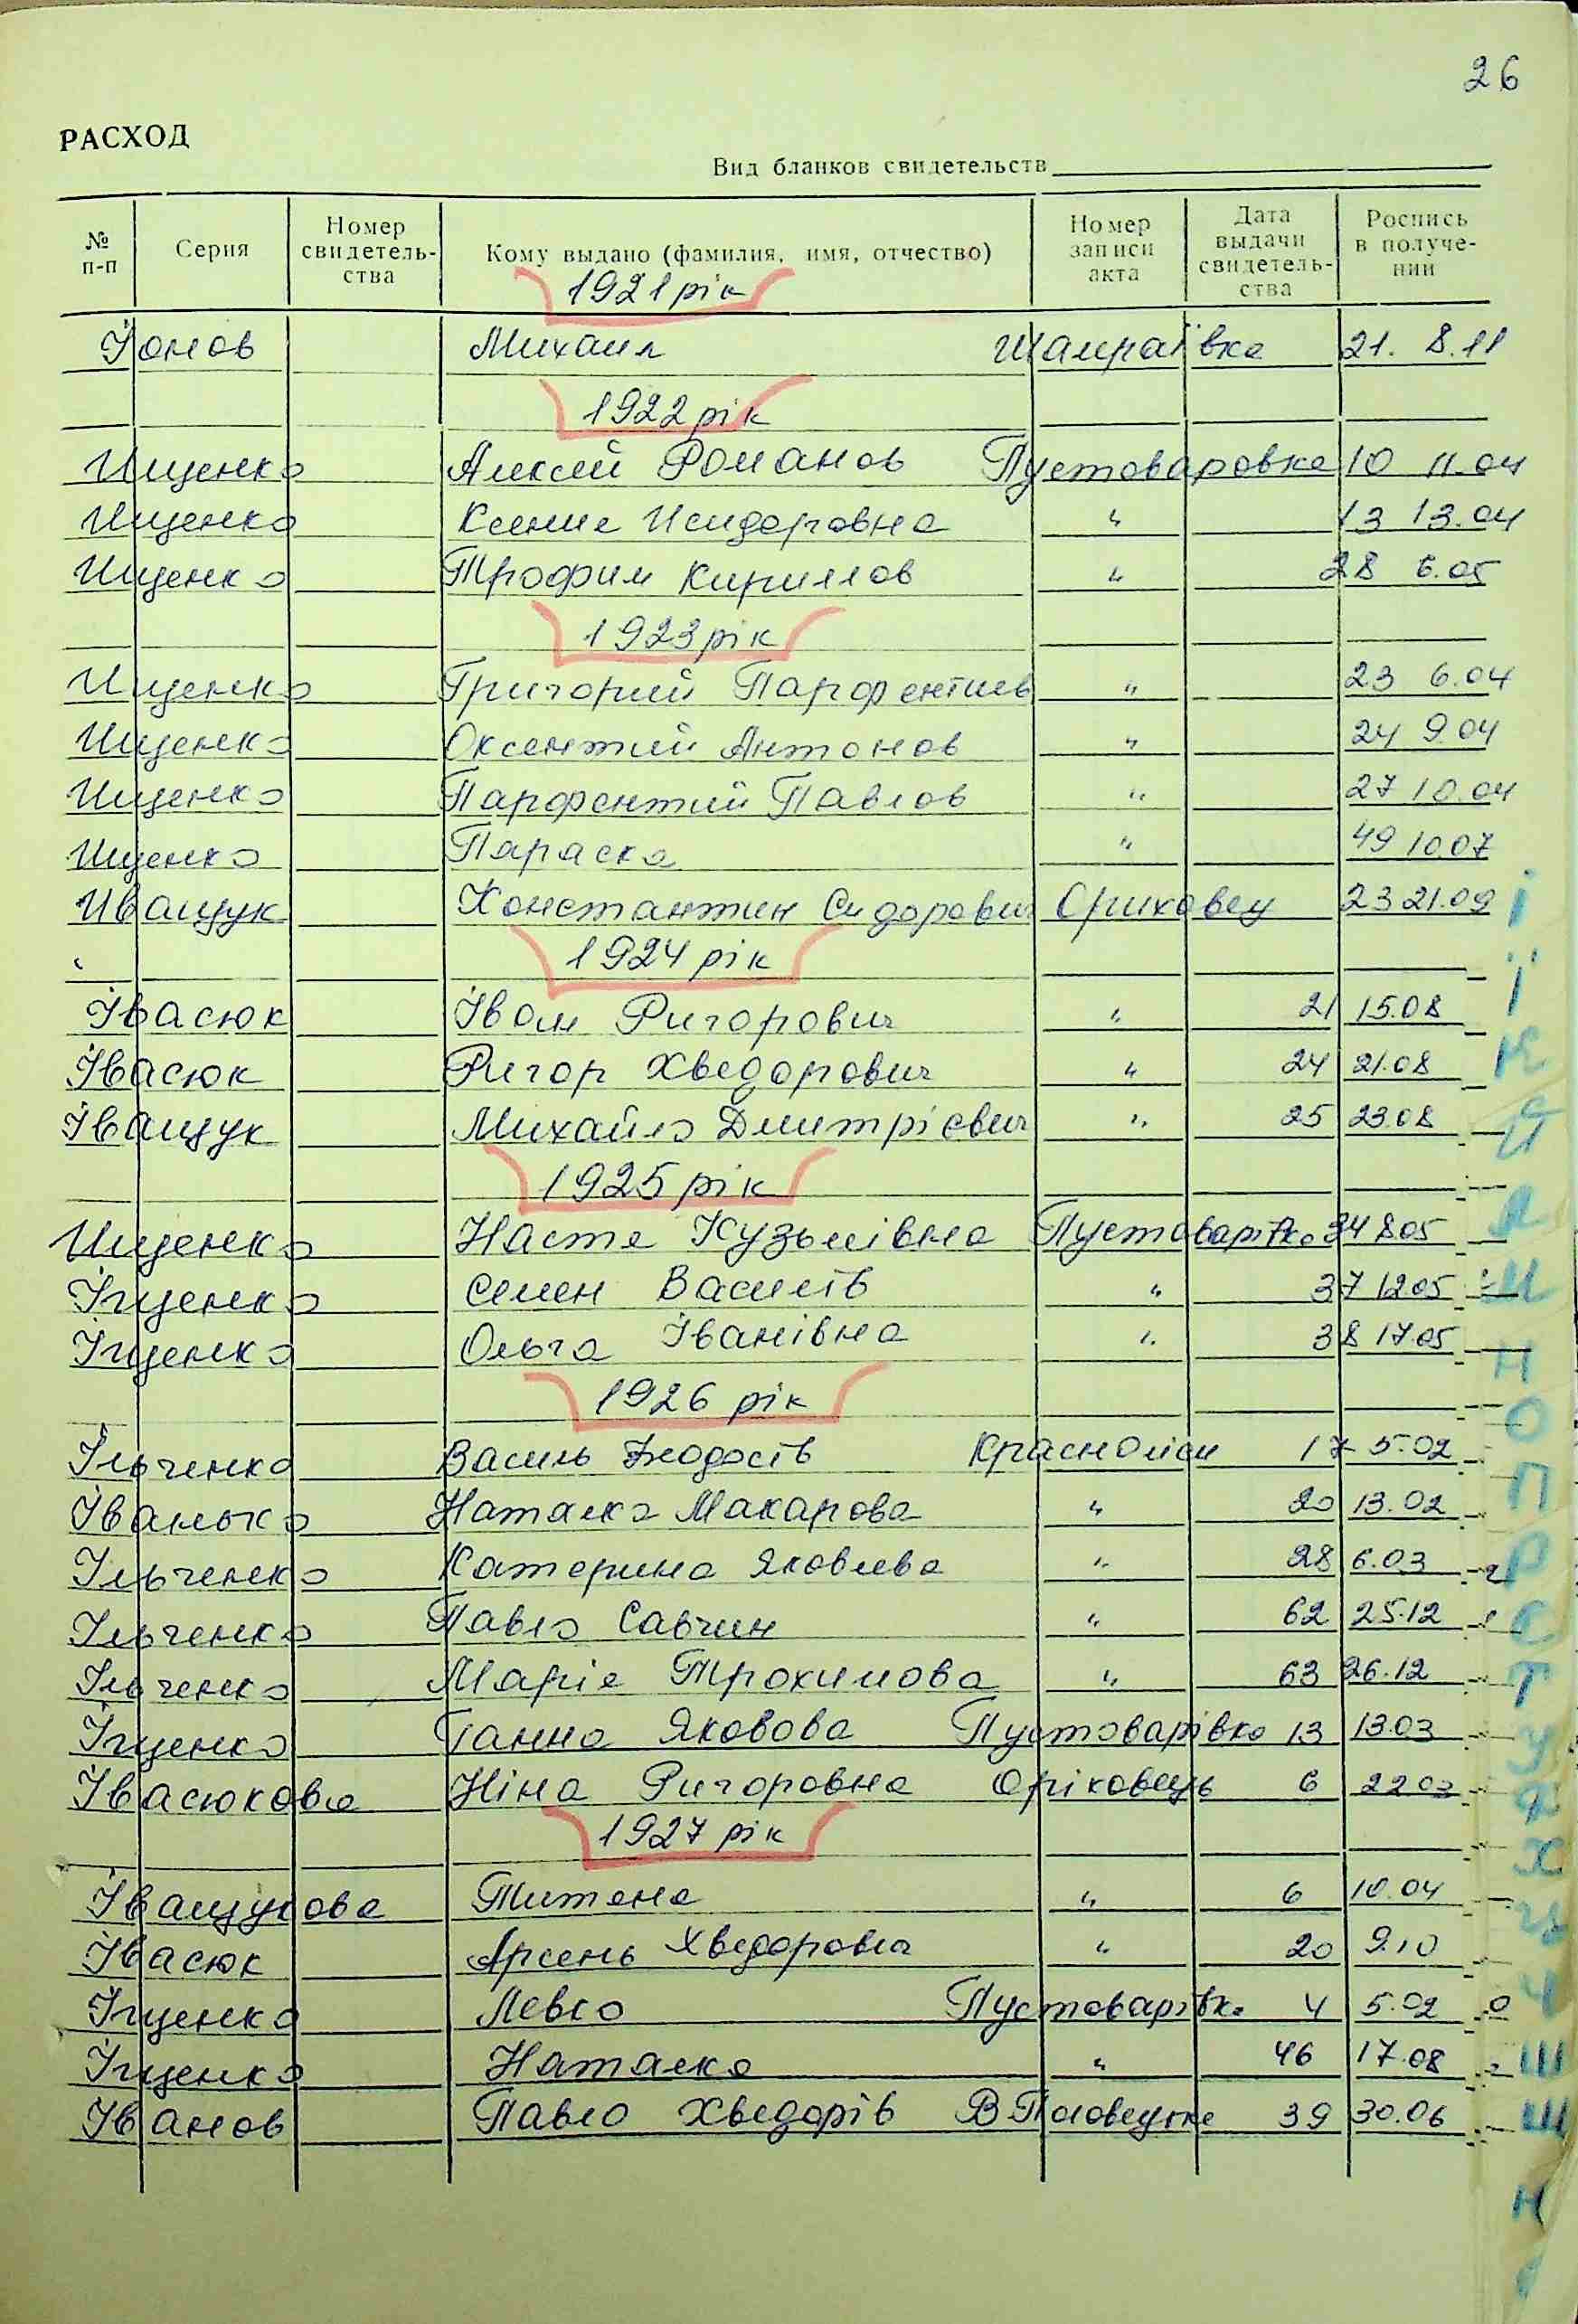 26
РАСХОД
Вид бланков свидетельств
№ п-п Серия Номер свидетель-ства Кому выдано (фамилия, имя, отчество) Номер записи акта Дата выдачи свидетель-ства Роспись в получе-нии
1921 рік
Іонов Михаил Шамраївка 21. 8.11
1922 рік
Ищенко Алексей Романов Пустоваровка 10 11.04
Ищенко Ксения Исидоровна " 13 13.04
Ищенко Трофим Кириллов " 28 6.05
1923 рік
Ищенко Григорий Парфентиев " 23 6.04
Ищенко Оксентий Антонов " 24 9.04
Ищенко Парфентий Павлов " 27 10.04
Ищенко Параска " 49 10.07
Иващук Константин Сидорович Ориховец 23 21.09
1924 рік
Івасюк Іван Ригорович " 21 15.08
Івасюк Ригор Хведорович " 24 21.08
Іващук Михайло Дмитрієвич " 25 23.08
1925 рік
Ищенко Настя Кузьмівна Пустоварівка 34 8.05
Іщенко Семен Василів " 37 12.05
Іщенко Ольга Іванівна " 38 17.05
1926 рік
Ільченко Василь Феодосів Краснолісы 17 5.02
Іванько Наталка Макарова " 20 13.02
Ільченко Катерина Яковлева " 28 6.03
Ільченко Павло Савчин " 62 25.12
Ільченко Марія Трохимова " 63 26.12
Іщенко Ганна Яковова Пустоварівка 13 13.03
Івасюкова Ніна Ригоровна Оріховець 6 22.03
1927 рік
Іващукова Титяна " 6 10.04
Івасюк Арсень Хведорович " 20 9.10
Іщенко Левко Пустоварівка 4 5.02
Іщенко Наталка " 46 17.08
Іванов Павло Хведорів В Половецьке 39 30.06